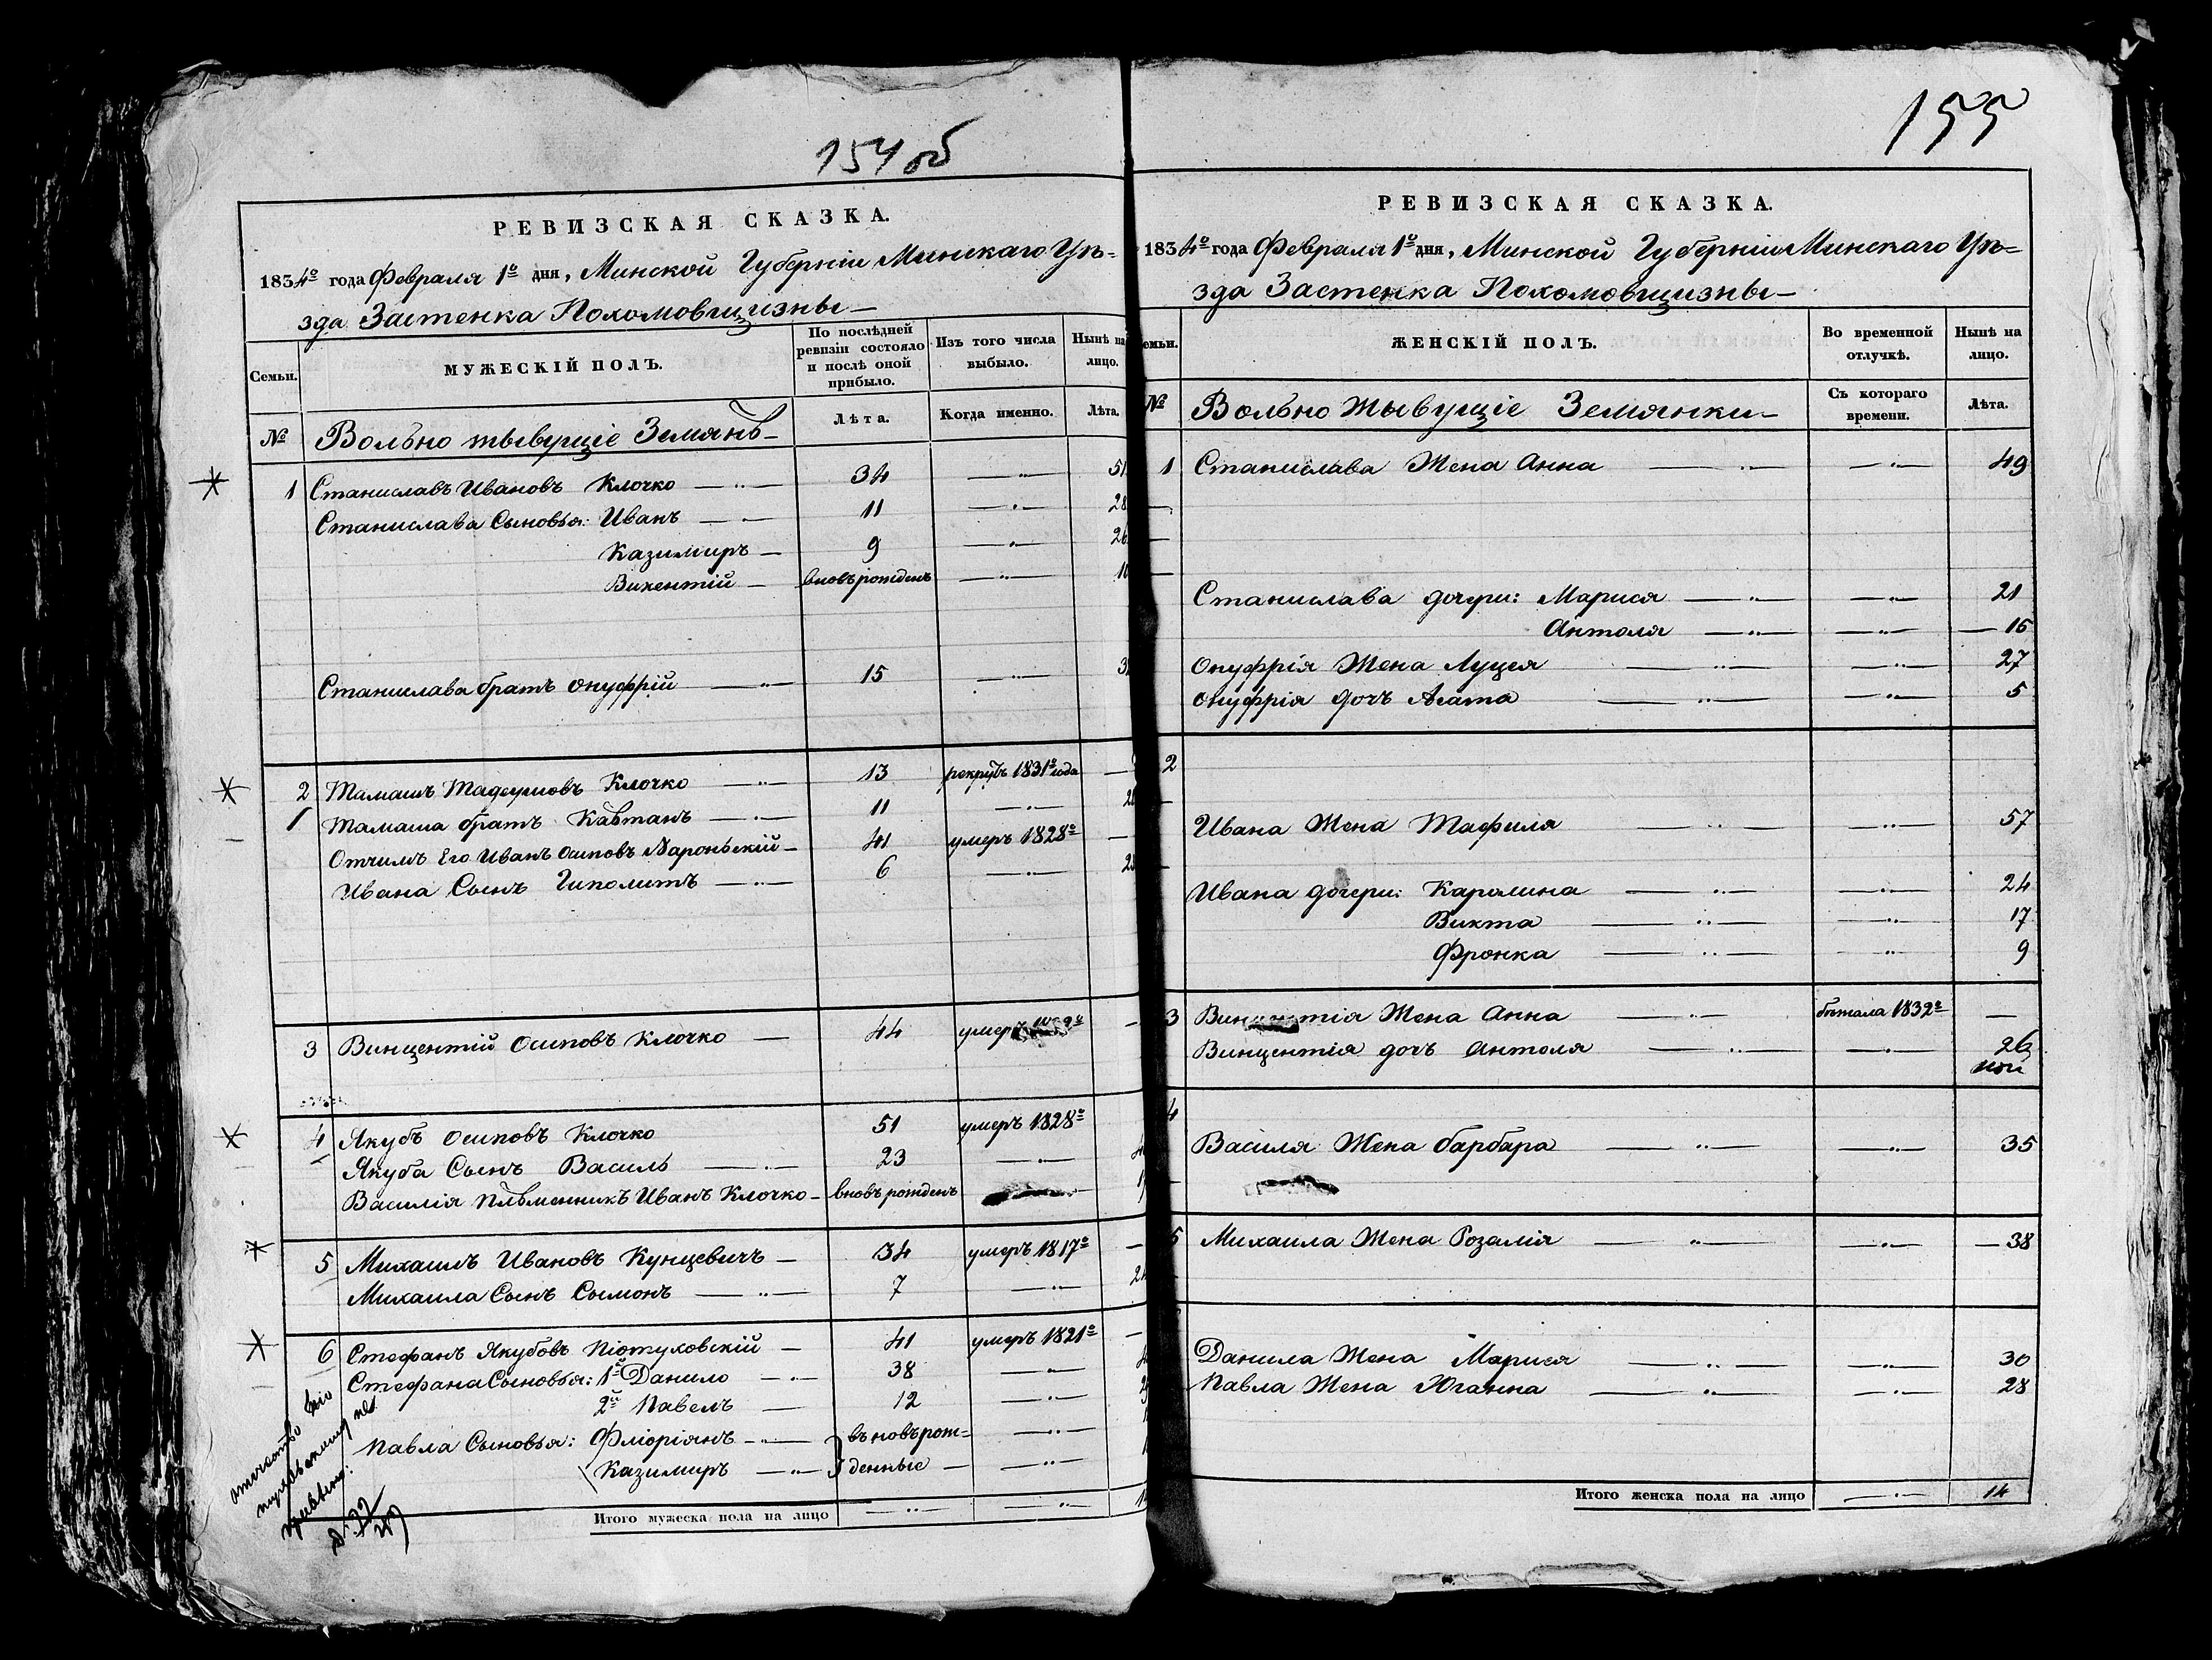 154 об
РЕВИЗСКАЯ СКАЗКА.
1834го года Февраля 1го дня, Минской Губерніи Минскаго Уѣ=
зда Застенка Похомовщизны
Семьи.
МУЖЕСКІЙ ПОЛЪ.
По послѣдней ревизіи состояло и послѣ оной прибыло.
Изъ того числа выбыло.
Нынѣ на лицо.
№
Вольно жывущіе Земянѣ
Лѣта.
Когда именно.
Лѣта.
1 Станиславъ Ивановъ Клочко 34 51
Станислава Сыновья: Иванъ 11 28
Казимиръ 9 26
Викентій вновь рожденъ 10
Станислава братъ Онуфрій 15
2 Тамашъ Тадеушовъ Клочко 13 рекрутъ 1831го года
1 Тамаша братъ Каѣтанъ 11 28
Отчимъ Его Иванъ Осиповъ 41 умеръ 1828го
Ивана Сынъ Гиполитъ 6 23
3 Винцентій Осиповъ Клочко 44 умеръ
4 Якубъ Осиповъ Клочко 51 умеръ 1828го
Якуба Сынъ Василь 23
Василія Плѣменникъ Иванъ Клочко вновь рожденъ
5 Михаилъ Ивановъ Кунцевичъ 34 умеръ 1817го
Михаила Сынъ Сымонъ 7 24
6 Стефанъ Якубовъ Піотуховскій 41 умеръ 1821го
Стефана Сыновья: 1й Данило 38
2й Павелъ 12
Павла Сыновья: Фліоріянъ въновьрож=
Казимиръ денные
Итого мужеска пола на лицо
155
РЕВИЗСКАЯ СКАЗКА.
1834го года Февраля 1го дня, Минской Губерніи Минскаго Уѣ=
зда Застенка Похомовщизны
емьи.
ЖЕНСКІЙ ПОЛЪ.
Во временной отлучкѣ.
Нынѣ на лицо.
№
Вольно Жывущіе Земянки
Съ котораго времени.
Лѣта.
1 Станислава Жена Анна 49
Станислава дочери: Марися 21
Антоля 15
Онуфрія Жена Луцея 27
Онуфрія дочь Агата 5
2
Ивана Жена Тафиля 57
Ивана дочери: Каралина 24
Викта 17
Фронка 9
3 Винцентія Жена Анна бѣжала 1832го
Винцентія дочь Антоля 26
4
Василя Жена барбара 35
5 Михаила Жена Розалія 38
Данила Жена Марися 30
Павла Жена Юганна 28
Итого женска пола на лицо 14